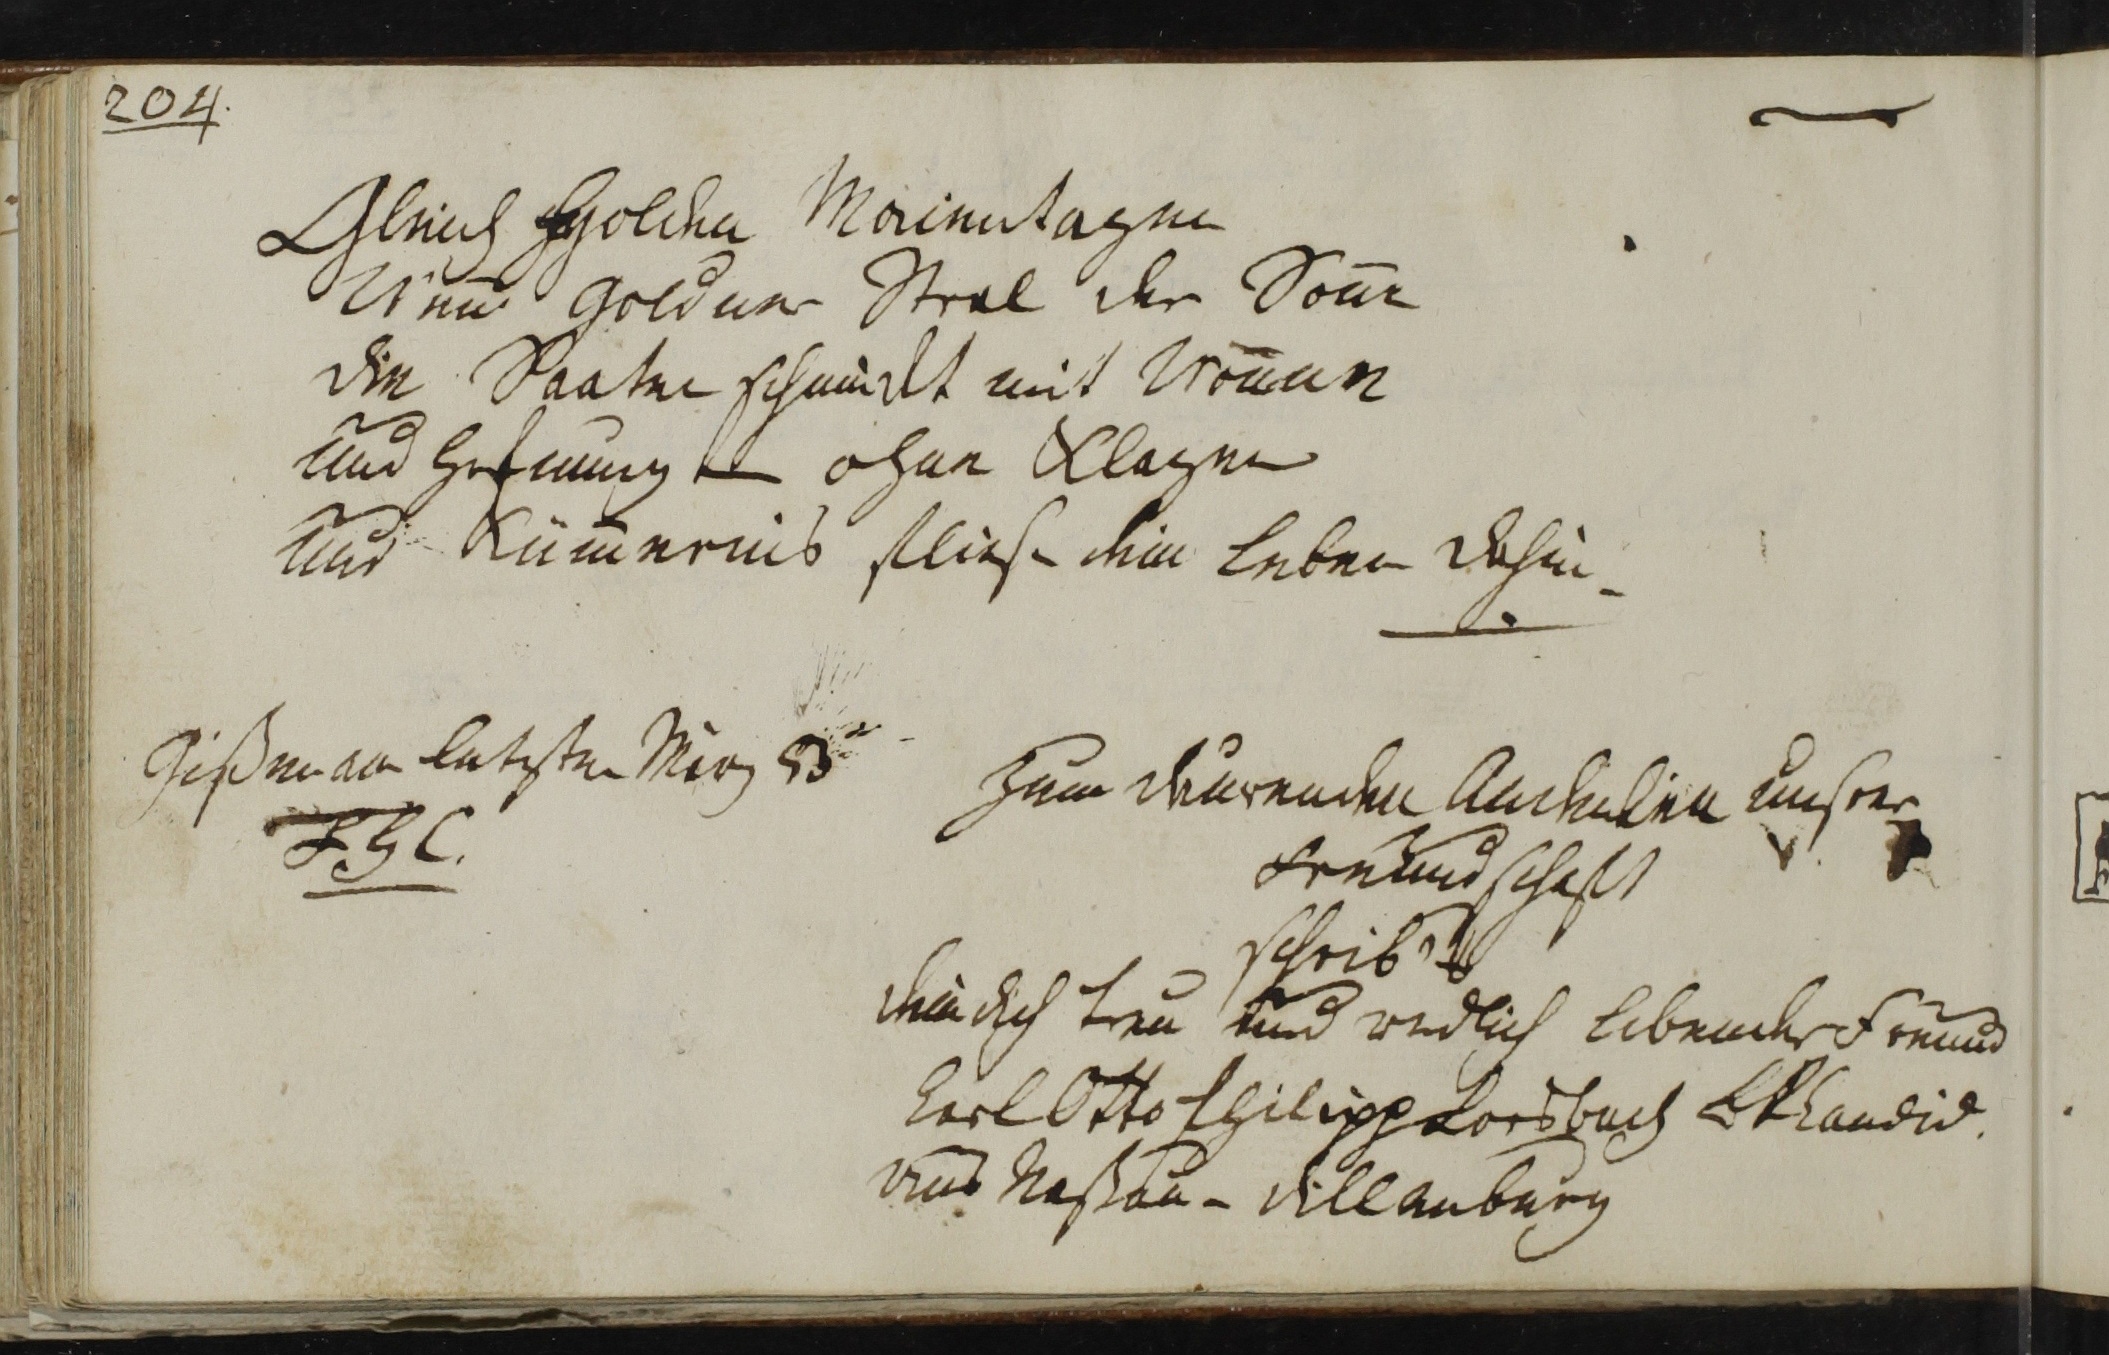 204.
Gleich holden Maientagen
Wenn goldner Stral der Sonne
die Saaten schmückt mit Wonne
und Hofnung — ohne Klagen
und Kümmernis flies dein Leben dahin.
Gießen am letzten März 83
Zum daurenden Andenken unsrer
Freundschaft
schrib's
dein dich treu und redlich libender Freund
Carl Otto Philipp Lorsbach Kandid.
aus Naßau-Dillenburg